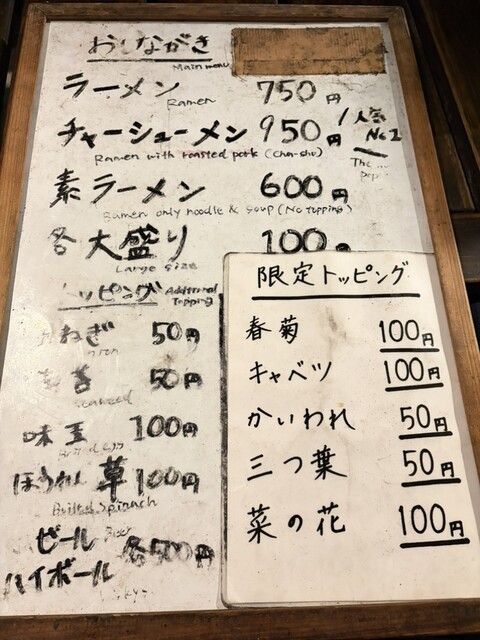 おしながき
Main menu
ラーメン 750円
Ramen
チャーシューメン 950円 人気 No1
Ramen with roasted pork (cha-shu)
The
素ラーメン 600円
Ramen only noodle & soup (No topping)
各大盛り 100円
Large size
トッピング Additional Topping
ねぎ 50円
50円
Seaweed
味玉 100円
ほうれん草 100円
Boiled Spinach
ビール Beer
ハイボール 各500円
限定トッピング
春菊 100円
キャベツ 100円
かいわれ 50円
三つ葉 50円
菜の花 100円